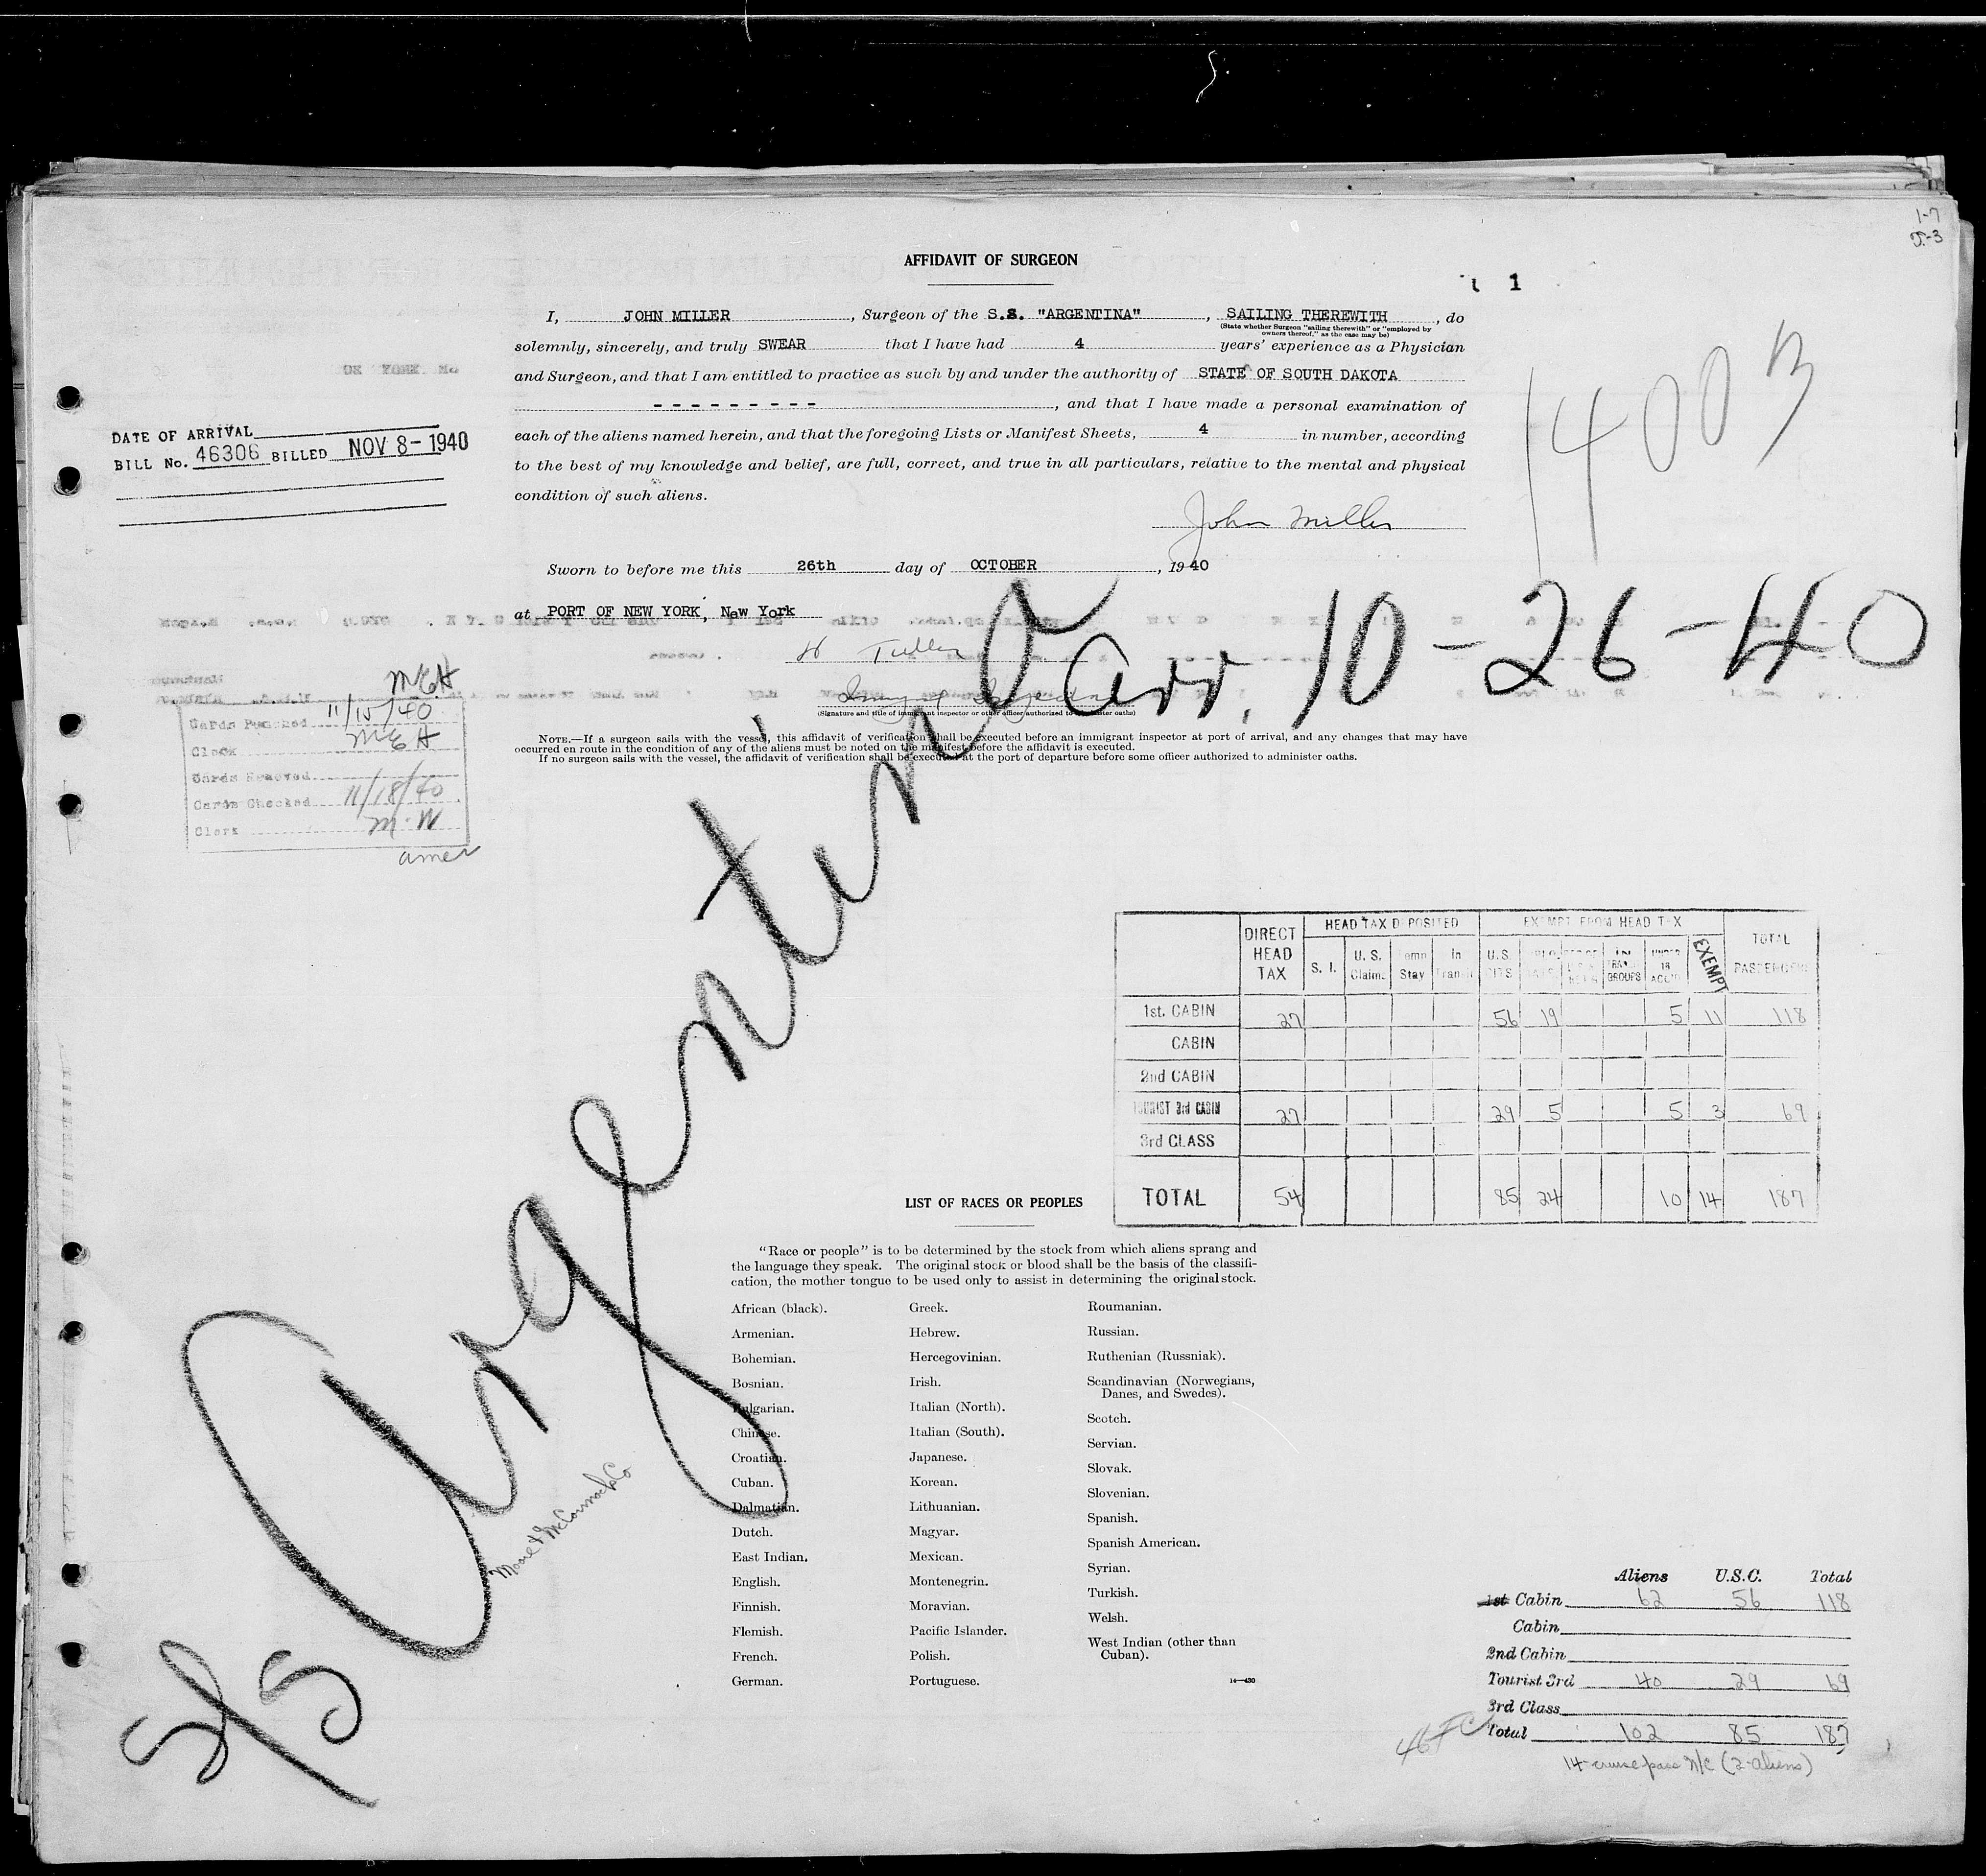 1-7
AFFIDAVIT OF SURGEON
1
I, JOHN MILLER, Surgeon of the S.S. "ARGENTINA", SAILING THEREWITH, do
(State whether Surgeon "sailing therewith" or "employed by
owners thereof," as the case may be)
solemnly, sincerely, and truly SWEAR that I have had 4 years' experience as a Physician
and Surgeon, and that I am entitled to practice as such by and under the authority of STATE OF SOUTH DAKOTA
- - - - - - - - -, and that I have made a personal examination of
each of the aliens named herein, and that the foregoing Lists or Manifest Sheets, 4 in number, according
to the best of my knowledge and belief, are full, correct, and true in all particulars, relative to the mental and physical
condition of such aliens.
John Miller
DATE OF ARRIVAL
BILL No. 46306 BILLED NOV 8-1940
Sworn to before me this 26th day of OCTOBER, 1940
at PORT OF NEW YORK, New York
(Signature and title of immigrant inspector or other officer authorized to administer oaths)
NOTE.—If a surgeon sails with the vessel, this affidavit of verification shall be executed before an immigrant inspector at port of arrival, and any changes that may have
occurred en route in the condition of any of the aliens must be noted on the manifest before the affidavit is executed.
If no surgeon sails with the vessel, the affidavit of verification shall be executed at the port of departure before some officer authorized to administer oaths.
S/S Argentina arr. 10-26-40
MEH
Cards Punched 11/15/40
Clerk MEH
Cards Removed
Cards Checked 11/18/40
Clerk M.W
amer
DIRECT HEAD TAX HEAD TAX DEPOSITED EXEMPT FROM HEAD TAX TOTAL PASSENGERS
S. I. U. S. Claims Temp Stay In Transit U.S. CITS GROUPS UNDER 16 EXEMPT
1st. CABIN 27 56 19 5 11 118
CABIN
2nd CABIN
TOURIST 3rd CABIN 27 29 5 5 3 69
3rd CLASS
TOTAL 54 85 24 10 14 187
LIST OF RACES OR PEOPLES
"Race or people" is to be determined by the stock from which aliens sprang and
the language they speak. The original stock or blood shall be the basis of the classifi-
cation, the mother tongue to be used only to assist in determining the original stock.
African (black).
Armenian.
Bohemian.
Bosnian.
Bulgarian.
Chinese.
Croatian.
Cuban.
Dalmatian.
Dutch.
East Indian.
English.
Finnish.
Flemish.
French.
German.
Greek.
Hebrew.
Hercegovinian.
Irish.
Italian (North).
Italian (South).
Japanese.
Korean.
Lithuanian.
Magyar.
Mexican.
Montenegrin.
Moravian.
Pacific Islander.
Polish.
Portuguese.
Roumanian.
Russian.
Ruthenian (Russniak).
Scandinavian (Norwegians,
Danes, and Swedes).
Scotch.
Servian.
Slovak.
Slovenian.
Spanish.
Spanish American.
Syrian.
Turkish.
Welsh.
West Indian (other than
Cuban).
14—430
Moore & McCormack Co
Aliens U.S.C. Total
1st Cabin 62 56 118
Cabin
2nd Cabin
Tourist 3rd 40 29 69
3rd Class
Total 102 85 187
14 cruise pass N/C (2-aliens)